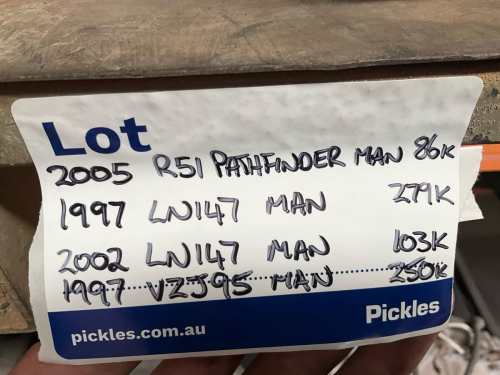 Lot
2005 R51 PATHFINDER MAN 86K
1997 LN147 MAN 279K
2002 LN147 MAN 103K
1997 VZJ95 MAN 250K
pickles.com.au Pickles